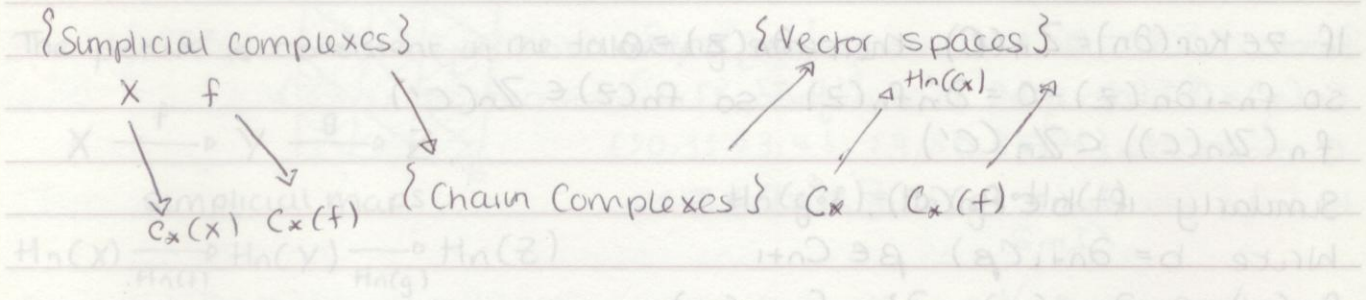 {Simplicial complexes} {Vector spaces}
X f Hn(Cx)
{Chain Complexes} Cx Cx(f)
Cx(X) Cx(f)